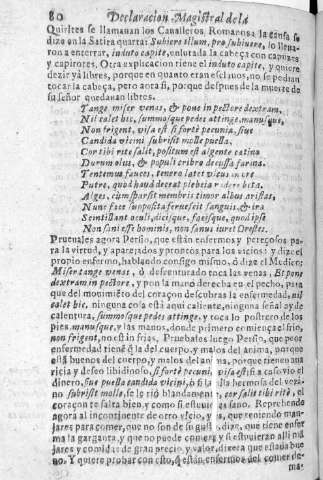 80 Declaracion Magistral de la
Quirites se llamauan los Caualleros Romanos, a la causa se
dize en la Satira quarta: Subiere illum, pro subiuere, lo lleua-
ron a enterrar, induto capite, enlutada la cabeça con capuzes
y capirotes. Otra explicacion tiene el induto capite, y quiere
dezir yà libres, porque en quanto eran esclauos, no se podian
tocar la cabeça, pero aora si, porque despues de la muerte de
su señor quedauan libres.
Tange miser venas, & pone in pectore dextram,
Nil calet hic, summosque pedes attinge, manusque,
Non frigent, visa est si fortè pecunia, siue
Candida vicini subrisit molle puella,
Cor tibi rite salit, positum est algente catino
Durum olus, & populi cribro decussa farina.
Tentemus fauces, tenero latet vlcus in ore
Putre, quod haud deceat plebeia radere beta.
Alges, cum excussit membris timor albus aristas,
Nunc face supposita feruescit sanguis, & ira
Scintillant oculi, dicisque, facisque, quod ipse
Non sani esse hominis, non sanus iuret Orestes.
Prueuales agora Persio, que están enfermos y pereçosos pa-
ra la virtud, y aparejados y prontos para los vicios: y dize el
proprio enfermo, hablando consigo mismo, ò dize el Medico:
Miser tange venas, ò desuenturado toca las venas, Et pone
dextram in pectore, y pon la mano derecha en el pecho, para
que del mouimiẽto del coraçon descubras la enfermedad, nil
calet hic, ninguna cosa està aqui caliente, ninguna señal ay de
calentura, summosque pedes attinge, y toca lo postrero de los
pies, manusque, y las manos, donde primero comiença el frio,
non frigent, no estàn frias. Prueuales luego Persio, que peor
enfermedad tienẽ q̃ la del cuerpo, y malos del anima, porque
està buenos del cuerpo, y malos del anima, porque tienen aua
ricia y desseo libidinoso, si fortè pecunia visa est, si a caso vio el
dinero, siue puella candida vicini, ò si la bella hermosa del vezi-
no subrisit molle, se le riò blandamente, cor salit tibi ritè, el
coraçon te salta bien, y como si estuuieras sano. Reprehende
agora al incontinente de otro vicio, y es, que teniendo man-
jares para comer, que no son de su gusto, dize, que tiene enfer
ma la garganta, y que no puede comer, y si estuuieran alli mã
jares y comidas de gran precio, y valor, dixera que estaua bue
no. Y quiere probar con esto, q̃ estàn enfermos del comer de-
ma-